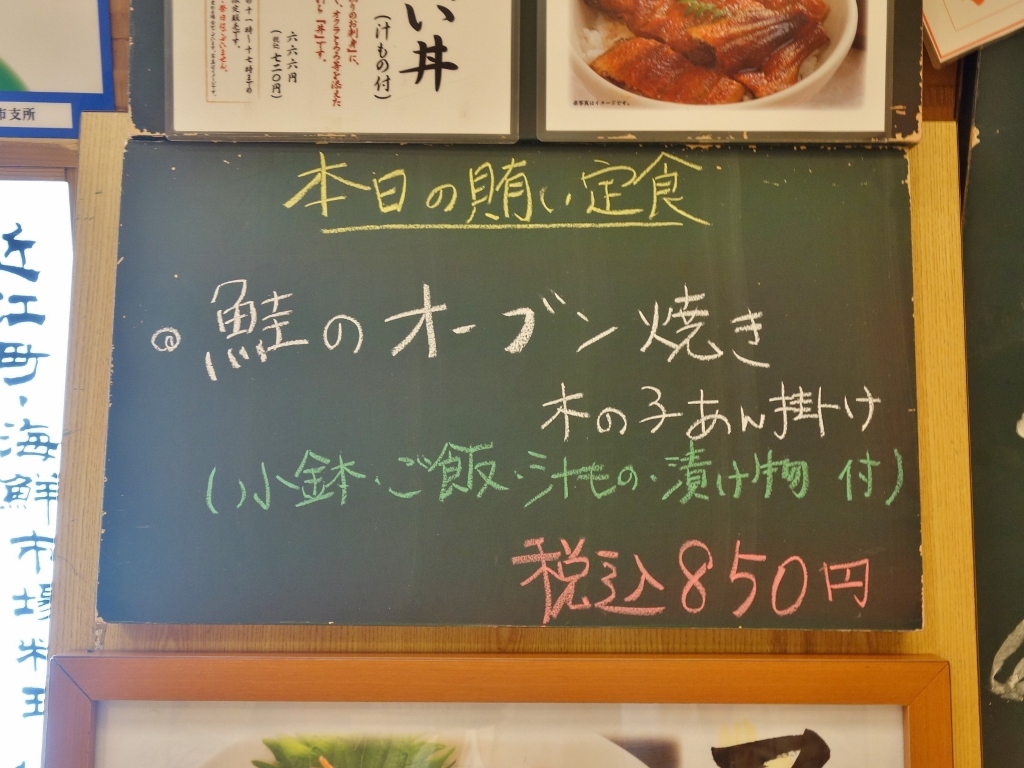 い丼
(汁もの付)
六六六円
(税込七二〇円)
※写真はイメージです。
市支所
本日の賄い定食
◎鮭のオーブン焼き
木の子あん掛け
(小鉢・ご飯・汁もの・漬け物 付)
税込850円
近江町・海鮮市場料理